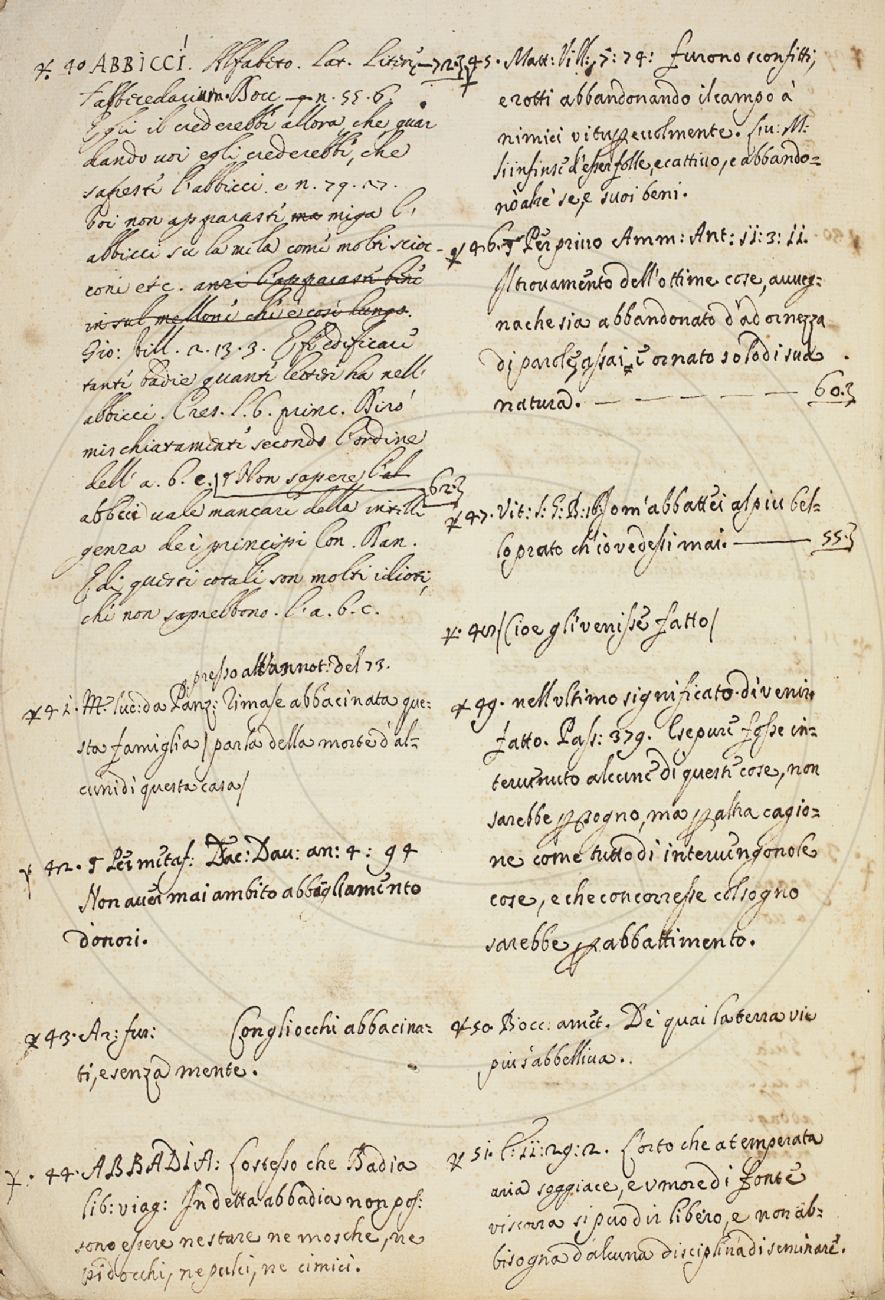 40 ABBICCÍ. Alfabeto. Lat. Literę 72.3
l'abbecedarium. Bocc. n. 55. 6.
Egli il crederebbe allora che guar
dando voi egli crederebbe, che
sapeste l'abbicci. e n. 79. 17.
Voi non apparaste ma miga l'
abbicci su la mela come molti scioc-
coni etc. anzi l'apparaste bene
in sul mellone ch'è così lungo.
Gio: Vill. 2. 13. 3. E fé edificare
tante badie quante lettere ha nell'
abbicci. Cres. l. 6. princ. Dirò
mischiatamente secondo l'ordine
dell' a. b. c. Non sapere l'al 62.3
abbicci vale mancare della intelli
genza dei principi Con. Dan.
E di questi cotali son molti idioti,
che non saprebbono. l'a. b. c.
presso all'annot: del 73.
41. Mᵉ luc: da Panz: Rimase abbacinata que:
sta famiglia / parla della morte d'al-
cuni di questa casa /
42. ¶ Per metaf: Tac: Dav: an: 4: 94
Non aver mai ambito abbagliamento
d'onori.
43. Ar: fur: Con gli occhi abbacina:
ti, e senza mente.
44. ABBADIA: Lo stesso che Badia
lib: viag: In detta abbadia non pos:
sono essere ne stare ne mosche, ne
pidocchi, ne pulci, ne cimici.
45. Matt: Vill: 5: 74: furono sconfitti,
e rotti abbandonando il campo à
nimici vituperevolmente. Liv: M:
Si infinse d'esser folle, e cattivo, e abbando=
nò a lui se, e suoi beni.
46. ¶ Per privo Amm: Ant: 11: 3: 11.
Il trovamento dell'ottime cose, avveg-
nache sia abbandonato d'adornezza
di parole, assai è ornato solo di sua
natura. 60.3
47. Vit: S: G: B: Io m'abbattei al più bel-
lo prato ch'io vedessi mai. 55.3
48 / Cioe gli venisse fatto /
49. nell'ultimo significato di venir
fatto. Pass: 379. E se pure fosse in=
tervenuto alcune di queste cose, non
sarebbe per sogno, ma per altra cagio=
ne come tutto dì intervengono le
cose, e che concorresse col sogno
sarebbe per abbattimento.
50 Bocc: amet. De quai la terra vie
più s'abbelliva.
51. C: 11: 29: 2. L'orto che a temperata
aria soggiace, e umore di fonte
viscorra si può dir libero, e non ab=
bisogna d'alcuna disciplina di seminare.